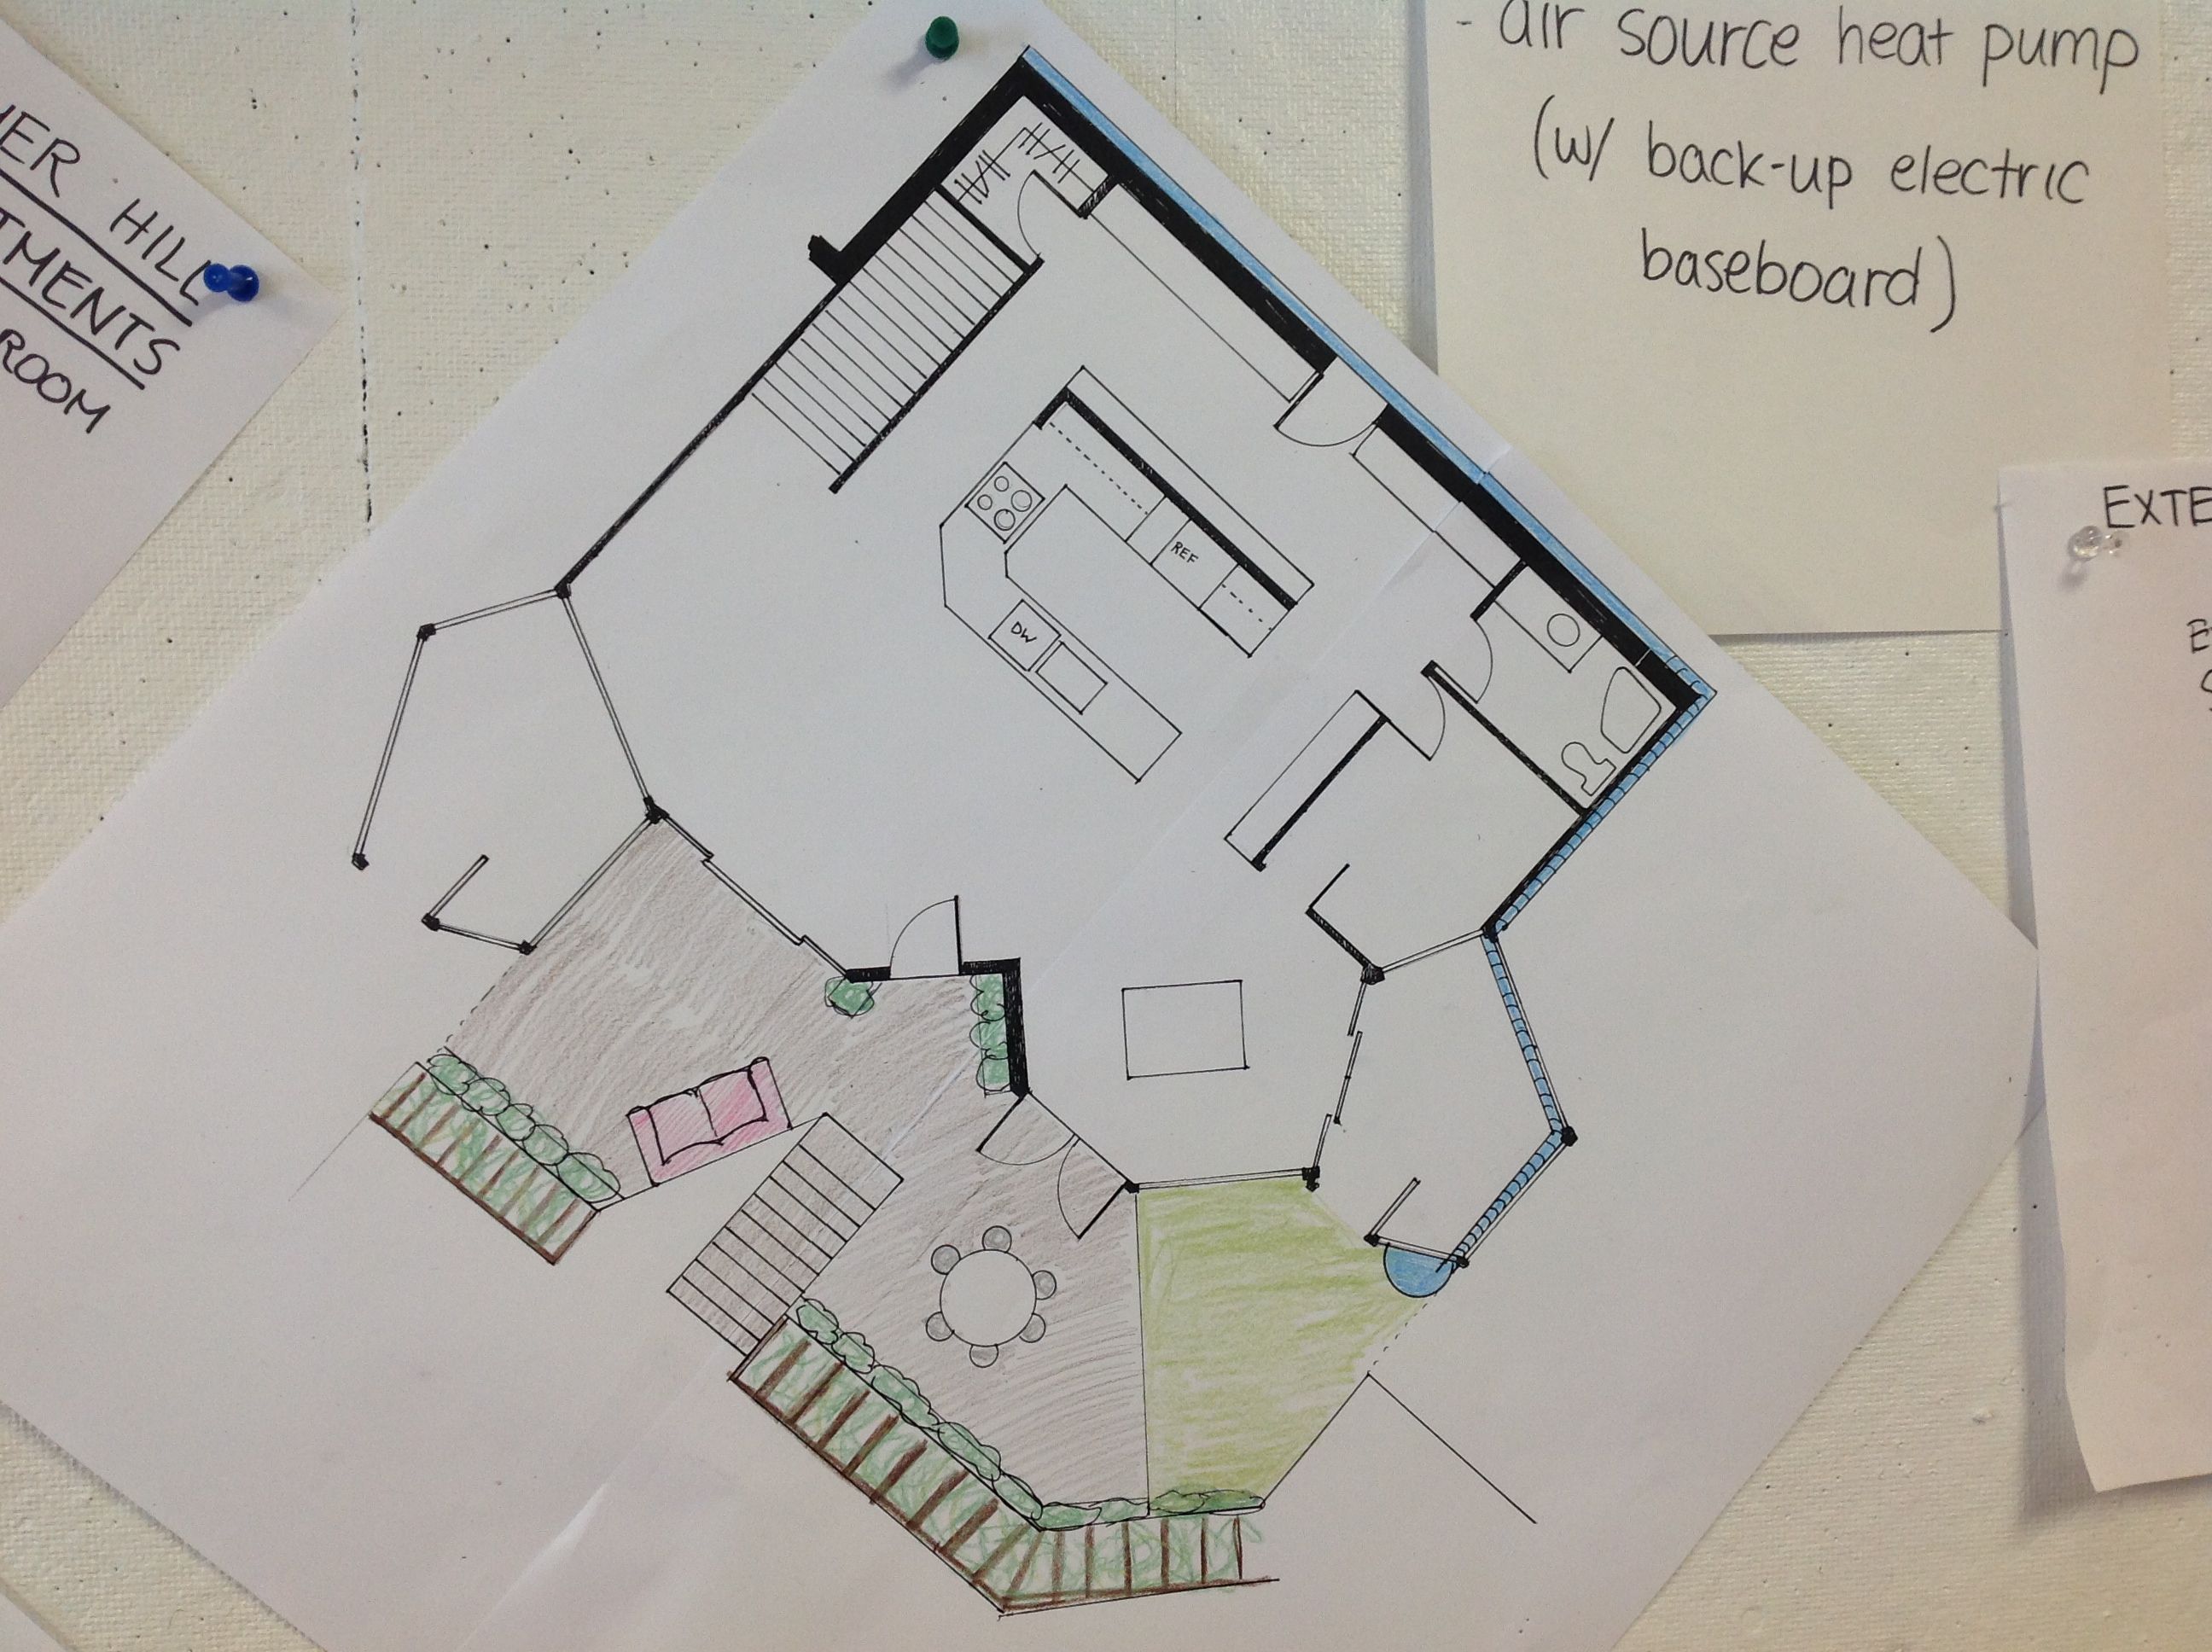 HILL
TMENTS
ROOM
- air source heat pump
(w/ back-up electric
baseboard)
EXTE
REF
DW